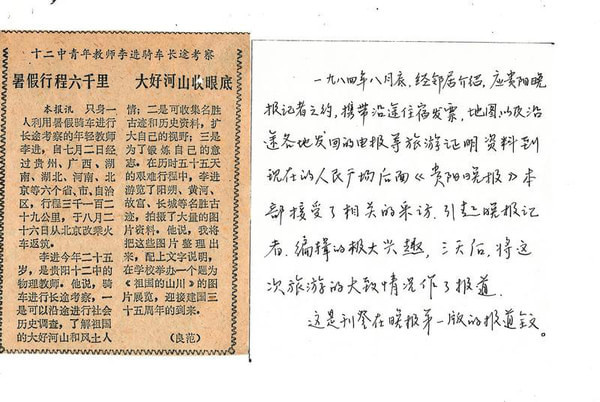 十二中青年教师李进骑车长途考察
暑假行程六千里 大好河山收眼底
本报讯 只身一
人利用暑假骑车进行
长途考察的年轻教师
李进,自七月二日经
过贵州、广西、湖
南、湖北、河南、北
京等六个省、市、自治
区,行程三千一百二
十九公里,于八月二
十六日从北京改乘火
车返筑。
李进今年二十五
岁,是贵阳十二中的
物理教师。他说,骑
车进行长途考察,一
是可以沿途进行社会
历史调查,了解祖国
的大好河山和风土人
情;二是可收集名胜
古迹和历史资料,扩
大自己的视野;三是
为了锻炼自己的意
志。在历时五十五天
的艰难行程中,李进
游览了阳朔、黄河、
故宫、长城等名胜古
迹,拍摄了大量的图
片资料。他说,我将
把这些图片整理出
来,配上文字说明,
在学校举办一个题为
《祖国的山川》的图
片展览,迎接建国三
十五周年的到来。
(良范)
一九八四年八月底,经邻居介绍,应贵阳晚
报记者之约,携带沿途住宿发票,地图以及沿
途各地发回的电报等旅游证明资料到
现在的人民广场后面《贵阳晚报》本
部接受了相关的采访,引起晚报记
者、编辑的极大兴趣,三天后,将这
次旅游的大致情况作了报道。
这是刊登在晚报第一版的报道全文。